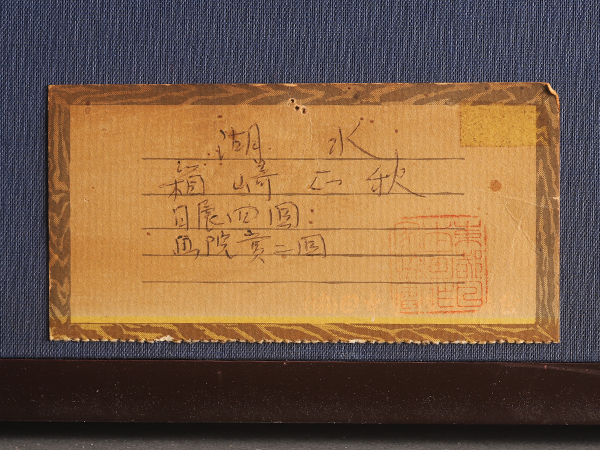 湖 水
箱崎 石秋
日展四回:
画院賞二回